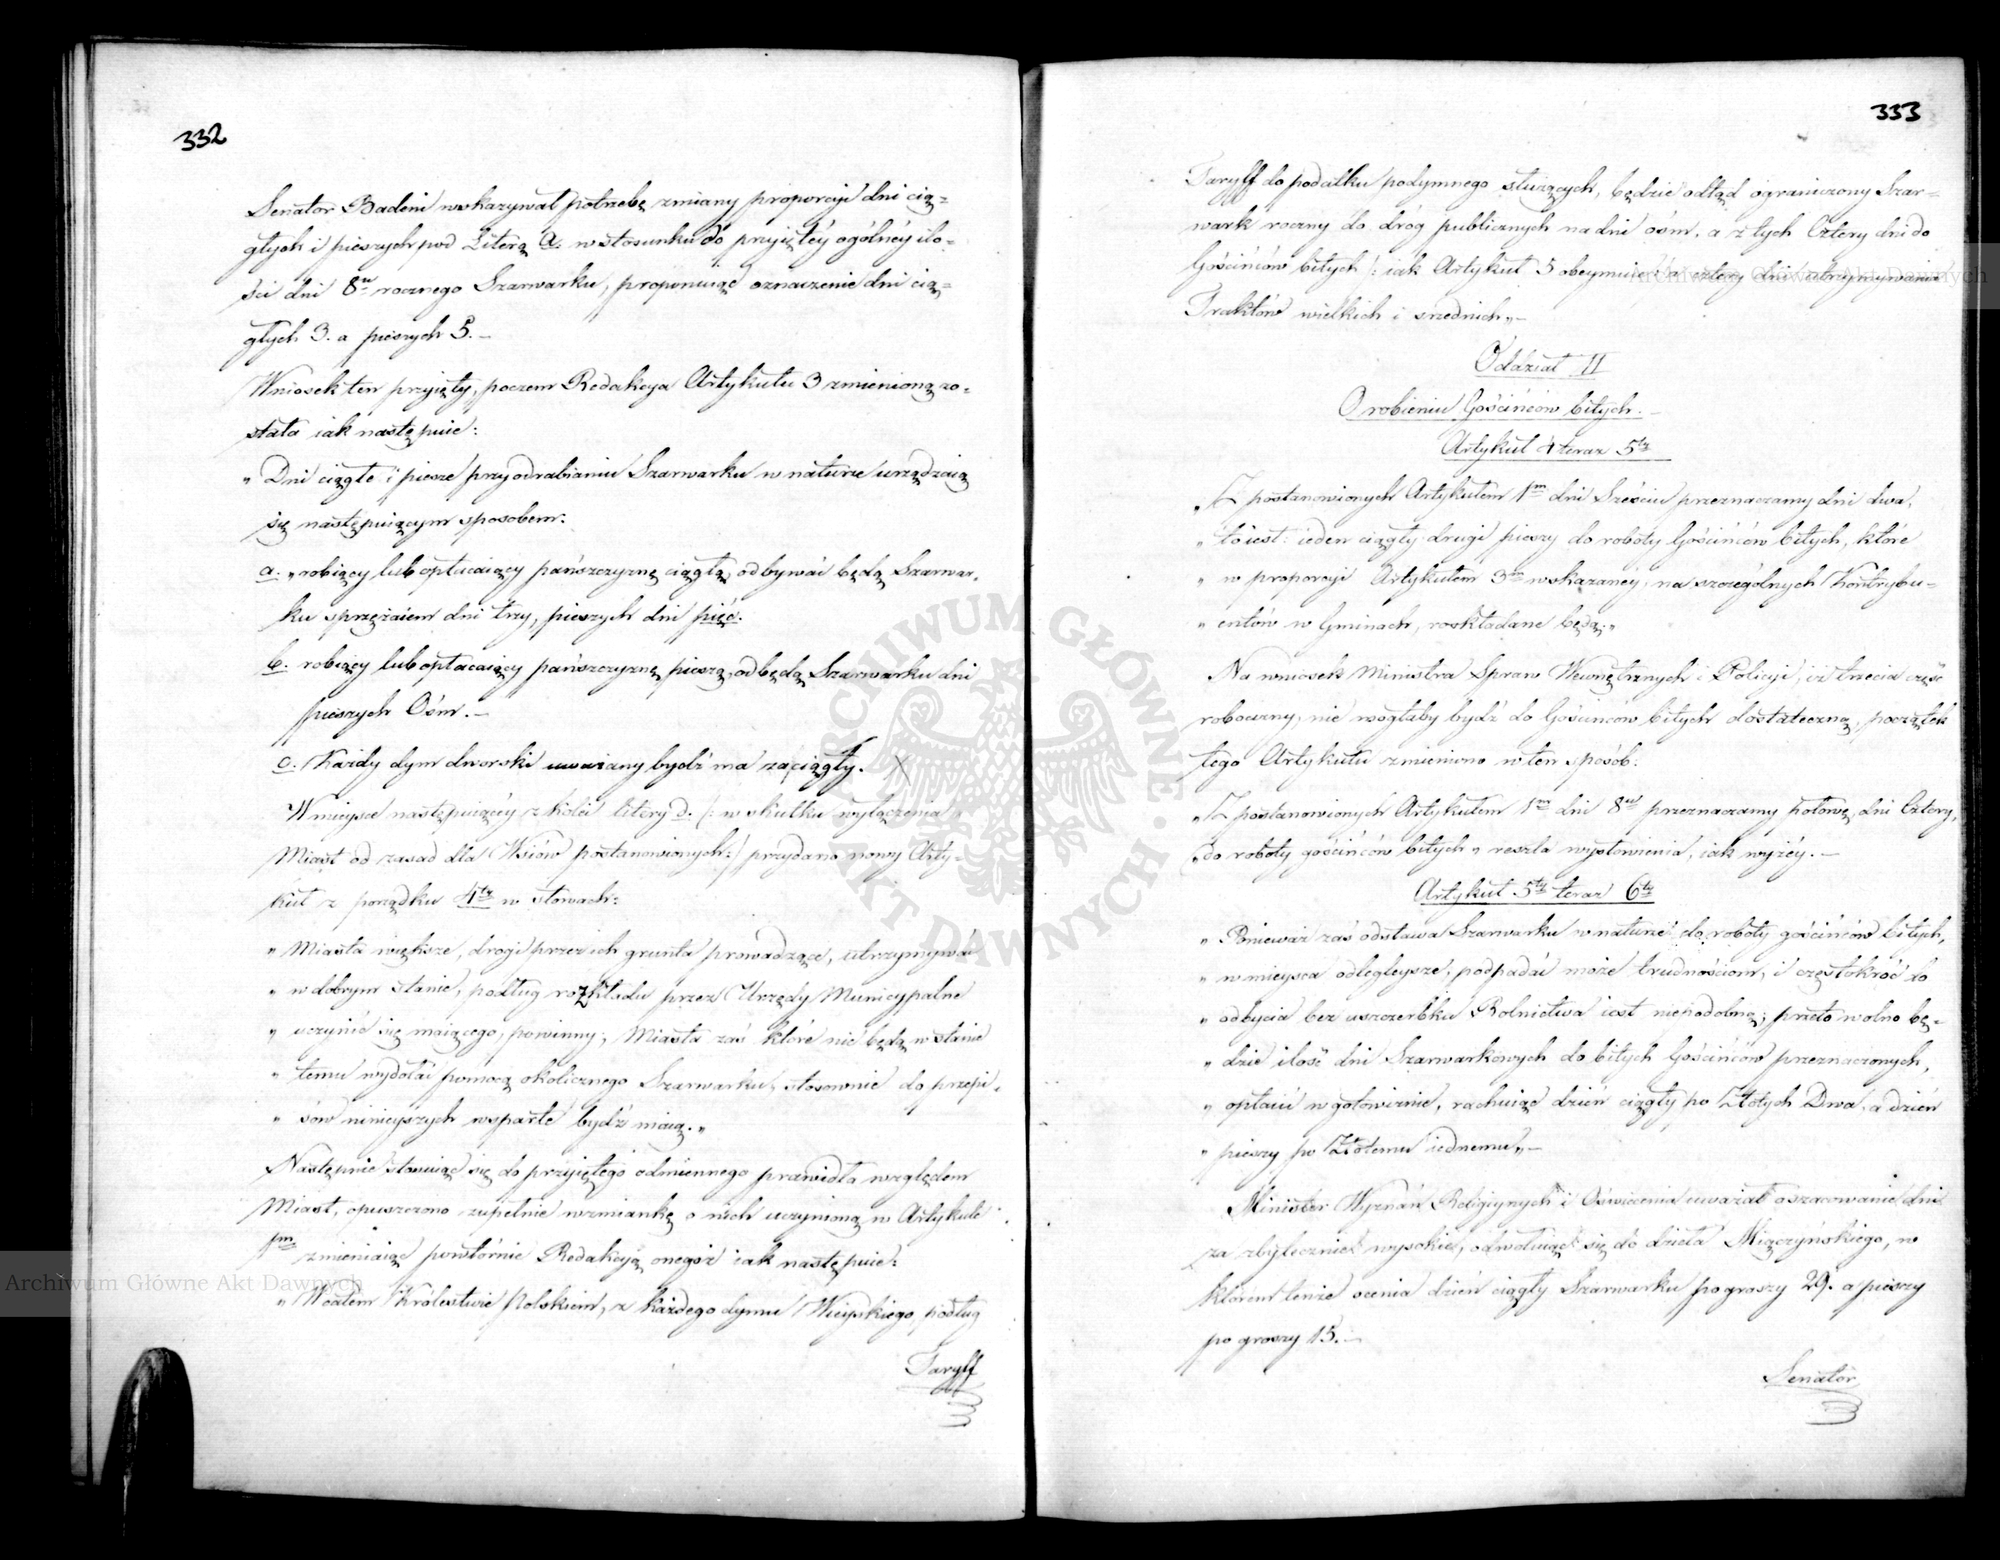 332
Senator Badeni wskazywał potrzebę zmiany proporcyi dni cią=
głych i pieszych pod Literą a. w stosunku do przyiętéy ogólnéy ilo=
ści dni 8iu rocznego Szarwarku, proponuiąc oznaczenie dni cią=
głych 3. a pieszych 5.—
Wniosek ten przyięty, poczem Redakcya Artykułu 3 zmienioną zo=
stała iak następuie:
„ Dni ciągłe i piesze przy odrabianiu Szarwarku w naturze urządzaią
się następuiącym sposobem:
a. „ robiący lub opłacaiący pańszczyznę ciągłą, odbywać będą Szarwar=
ku sprzężaiem dni trzy, pieszych dni pięć.
b. robiący lub opłacaiący pańszczyznę pieszą, odbędą Szarwarku dni
pieszych Ośm.—
c. Każdy dym dworski uważany bydź ma za ciągły.
W mieysce następuiącéy z kolei litery d. (: w skutku wyłączenia
Miast od zasad dla Wsiów postanowionych:) przydano nowy Arty=
kuł z porządku 4ty w słowach:
„ Miasta większe, drogi przez ich grunta prowadzące, utrzymywać
„ w dobrym stanie, podług rozkładu przez Urzędy Municypalne
„ uczynić się maiącego, powinny; Miasta zaś które nie będą w stanie
„ temu wydołać pomocą okolicznego Szarwarku, stosownie do przepi=
„ sów ninieyszych wsparte bydź maią. „
Następnie stosuiąc się do przyiętego odmiennego prawidła względem
Miast, opuszczono zupełnie wzmiankę o nich uczynioną w Artykule
1m zmieniaiąc powtórnie Redakcyą onegoż iak następuie:
„ W całem Królestwie Polskiem, z każdego dymu Wieyskiego, podług
Taryff
333
Taryff do podatku podymnego służących, będzie odtąd ograniczony Szar=
wark roczny do dróg publicznych na dni ośm, a z tych Cztery dni do
Gościńców bitych /: iak Artykuł 5 obeymuie :/ a cztery dni utrzymywania
Traktów wielkich i srzednich „—
Oddział II
O robieniu Gościńców bitych.—
Artykuł 4 teraz 5ty
„ Z postanowionych Artykułem 1m dni Sześciu przeznaczamy dni dwa,
„ to iest: ieden ciągły drugi pieszy do roboty Gościńców bitych, które
„ w proporcyi Artykułem 3m wskazanéy, na szczególnych Kontrybu=
„ entów w Gminach, rozkładane będą. „
Na wniosek Ministra Spraw Wewnętrznych i Policyi, iż trzecia część
robocizny, nie mogłaby bydź do Gościńców bitych dostateczną, początek
tego Artykułu zmieniono w ten sposób:
„ Z postanowionych Artykułem 1m dni 8iu przeznaczamy połowę, dni Cztery,
„ do roboty gościńców bitych „ reszta wysłowienia, iak wyżéy.—
Artykuł 5ty teraz 6ty
„ Ponieważ zaś odstawa Szarwarku w naturze do roboty gościńców bitych,
„ w mieysca odlegleysze, podpadać może trudnościom, i częstokróć do
„ odbycia bez uszczerbku Rolnictwa iest niepodobną; przeto wolno bę=
„ dzie ilość dni Szarwarkowych do bitych Gościńców przeznaczonych,
„ opłacić w gotowiznie, rachuiąc dzień ciągły po Złotych Dwa, a dzień
„ pieszy po Złotemu iednemu „—
Minister Wyznań Religiynych i Oświecenia uważał oszacowanie dni
za zbytecznie wysokie, odwołuiąc się do dzieła Miączyńskiego, w
którem tenże ocenia dzień ciągły Szarwarku po groszy 29. a pieszy
po groszy 15.—
Senator
ARCHIWUM GŁÓWNE AKT DAWNYCH
Archiwum Główne Akt Dawnych
Archiwum Główne Akt Dawnych